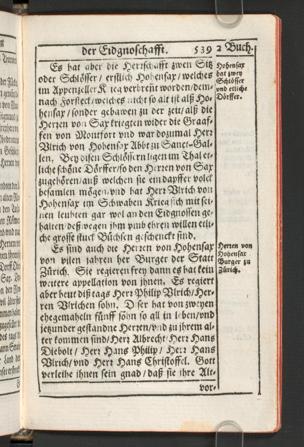 der Eidgnoschafft. 539 2 Buch.
Es hat aber die Herrschafft zwen Sitz
oder Schlösser / erstlich Hohensax / welches
im Appenzeller Krieg verbrent worden / dem-
nach Forsteck / welches nicht so alt ist alß Ho-
hensax / sonder gebawen zu der zeit / alß die
Herzen von Sax kriegten wider die Graaf-
fen von Montfort vnd war dozumal Herr
Vlrich von Hohensax Abbt zu Sanct-Gal-
len. Bey disen Schlössern ligen im Thal et-
liche schöne Dörffer / so den Herren von Sax
zugehören / auß welchen sie ein dapffer volck
besamlen mögen / vnd hat Herr Vlrich von
Hohensax im Schwaben Krieg sich mit sei-
nen leuthen gar wol an den Eidgnossen ge-
halten / deßwegen ihm vmb ehren willen etli-
che grosse stuck Büchsen geschenckt sind.
Es sind auch die Herren von Hohensax
von vilen jahren her Burger der Statt
Zürich. Sie regieren frey dann es hat kein
weitere appellation von jhnen. Es regiert
aber heut diß tags Herr Philip Vlrich / Her-
ren Vlrichen sohn. Diser hat von zweyen
ehegemaheln fünff söhn so all in leben / vnd
jetzunder gestandne Herren / vnd zu jhrem al-
ter kommen sind / Herr Albrecht / Herr Hans
Diebolt / Herr Hans Philip / Herr Hans
Vlrich / vnd Herr Hans Christoffel. Gott
verleihe ihnen sein gnad / daß sie ihre Alt-
vor-
Hohensax
hat zwey
Schlösser
vnd etliche
Dörffer.
Herren von
Hohensax
Burger zu
Zürich.